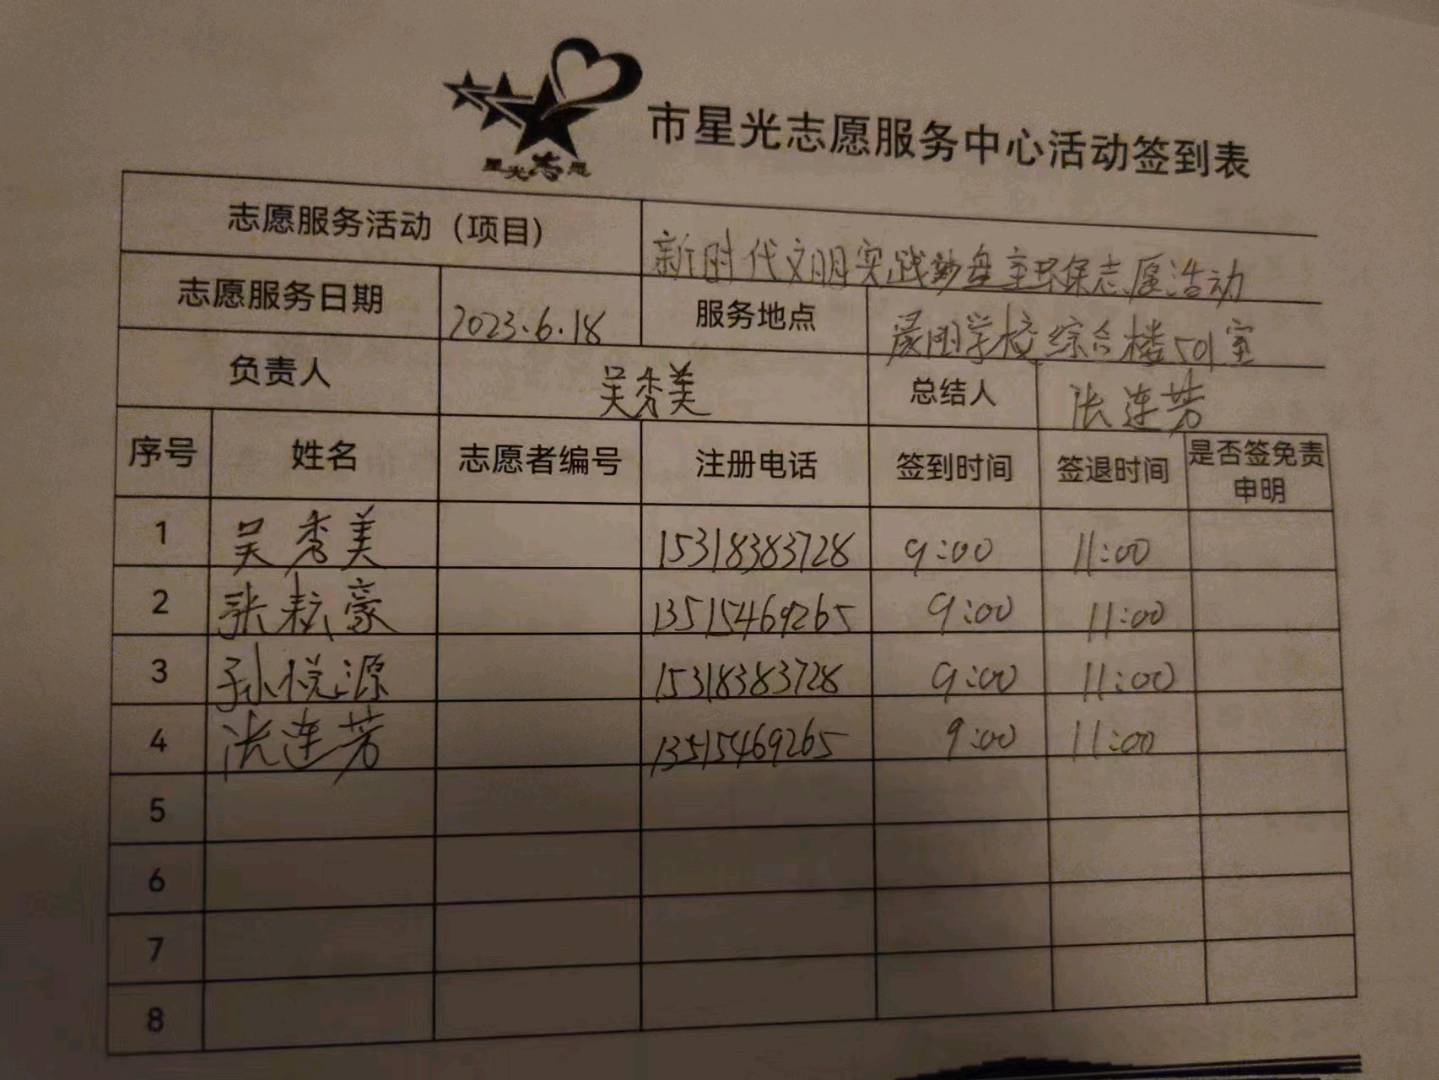 星光志愿
市星光志愿服务中心活动签到表
志愿服务活动（项目） 新时代文明实践沙盘室环保志愿活动
志愿服务日期 2023.6.18 服务地点 学校综合楼501室
负责人 吴秀美 总结人 张连芳
序号 姓名 志愿者编号 注册电话 签到时间 签退时间 是否签免责申明
1 吴秀美 15318383728 9:00 11:00
2 张耘豪 13515469265 9:00 11:00
3 孙悦源 15318383728 9:00 11:00
4 张连芳 13515469265 9:00 11:00
5
6
7
8